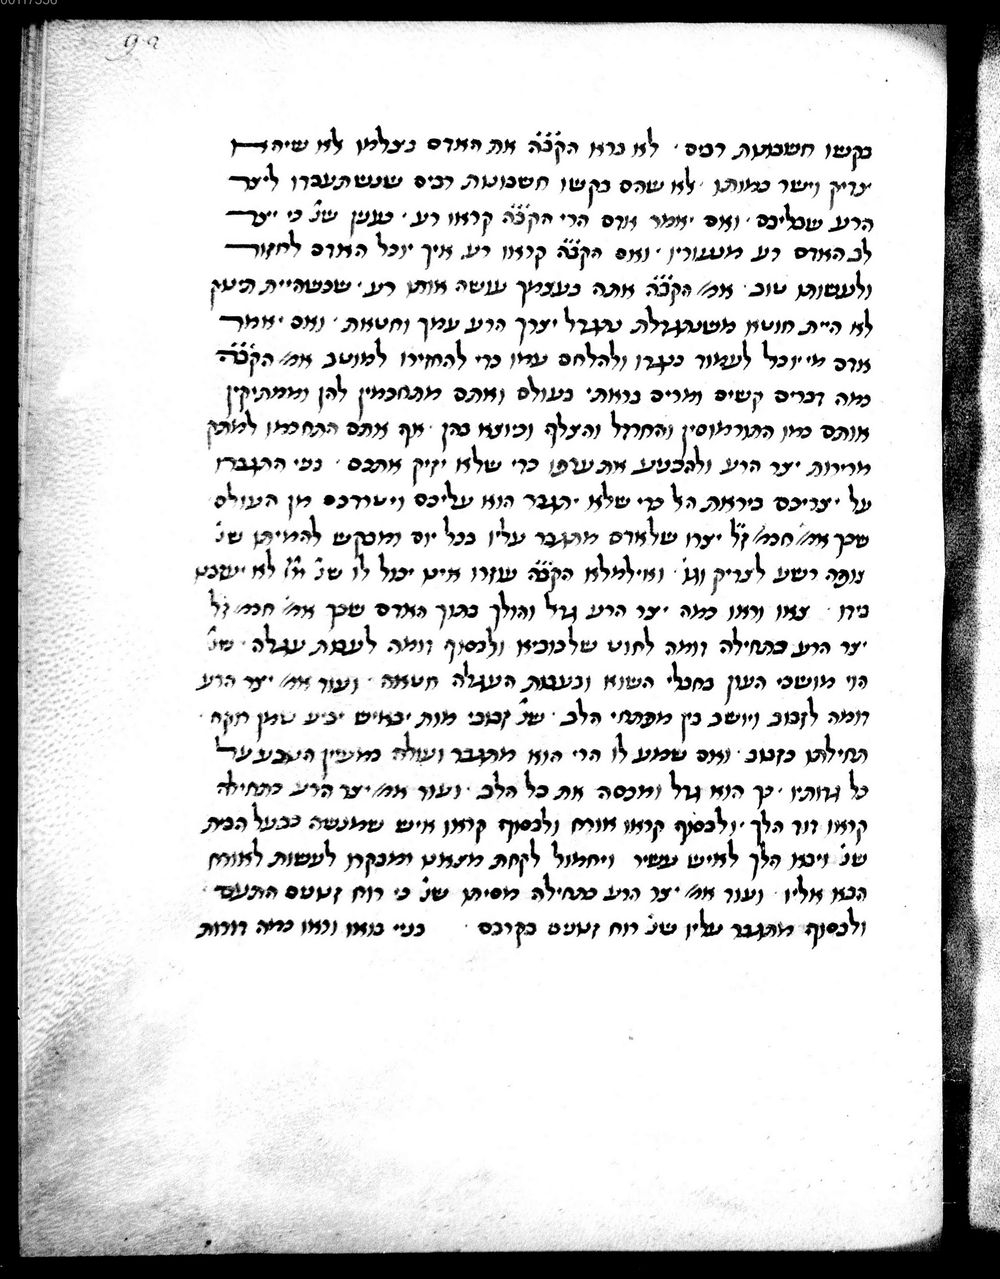 9a
בקשו חשבונות רבים · לא ברא הקב״ה את האדם בצלמו לא שיהא
צדיק וישר כמותו · לא שהם בקשו חשבונות רבים שנשתעבדו ליצר
הרע שבליבם · ואם יאמר אדם הרי הקב״ה קראו רע · כענין שנ׳ כי יצר
לב האדם רע מנעוריו · ואם הקב״ה קראו רע איך יוכל האדם לחזור
ולעשותו טוב · אמ׳ הקב״ה אתה בעצמך עושה אותו רע · שכשהיית תינוק
לא היית חוטא משנתגדלת נתגדל יצרך הרע עמך וחטאת · ואם יאמר
אדם מי יוכל לעמוד כנגדו ולהלחם עמו כדי להחזירו למוטב אמ׳ הקב״ה
כמה דברים קשים ומרים בראתי בעולם ואתם מתחכמין להן וממתיקין
אותם כמו התורמוסין והחרדל והצלף וכיוצא בהן · אף אתם התחכמו למתק
מרירות יצר הרע ולהכניע את ערפו כדי שלא יזיק אתכם · בני התגברו
על יצריכם ביראת הל כדי שלא יתגבר הוא עליכם ויטרדכם מן העולם
שכך אמ׳ חכמ׳ ז״ל יצרו שלאדם מתגבר עליו בכל יום ומבקש להמיתו שנ׳
צופה רשע לצדיק וגו׳ · ואילמלא הקב״ה עוזרו אינו יכול לו שנ׳ י״י לא יעזבנו
בידו · צאו וראו כמה יצר הרע גדל והולך בתוך האדם שכך אמ׳ חכמ׳ ז״ל
יצר הרע בתחילה דומה לחוט שלבוכיא ולבסוף דומה לעבות עגלה · שנ׳
הוי מושכי העון בחבלי השוא וכעבות העגלה חטאה · ועוד אמ׳ יצר הרע
דומה לזבוב ויושב בין מפתחי הלב · שנ׳ זבובי מות יבאיש יביע שמן רוקח ·
תחילתו כזבוב · ואם שמע לו הרי הוא מתגבר ועולה כמעיין הנובע על
כל גדותיו · כך הוא גדל ומכסה את כל הלב · ועוד אמ׳ יצר הרע בתחילה
קראו דוד הלך · ולבסוף קראו אורח ולבסוף קראו איש שמנשה כבעל הבית
שנ׳ ויבא הלך לאיש עשיר ויחמול לקחת מצאנו ומבקרו לעשות לאורח
הבא אליו · ועוד אמ׳ יצר הרע בתחילה מסיתו שנ׳ כי רוח זנונים התעה ·
ולבסוף מתגבר עליו שנ׳ רוח זנונים בקרבם · בני בואו וראו כמה דורות